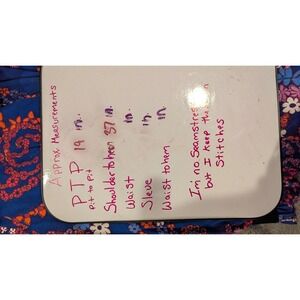 Approx Measurements
PTP 19 in.
Pit to Pit
Shoulder to hem 37 in.
Waist in.
Sleve in.
Waist to hem in
I'm no Seamstress
but I keep them in
Stitches